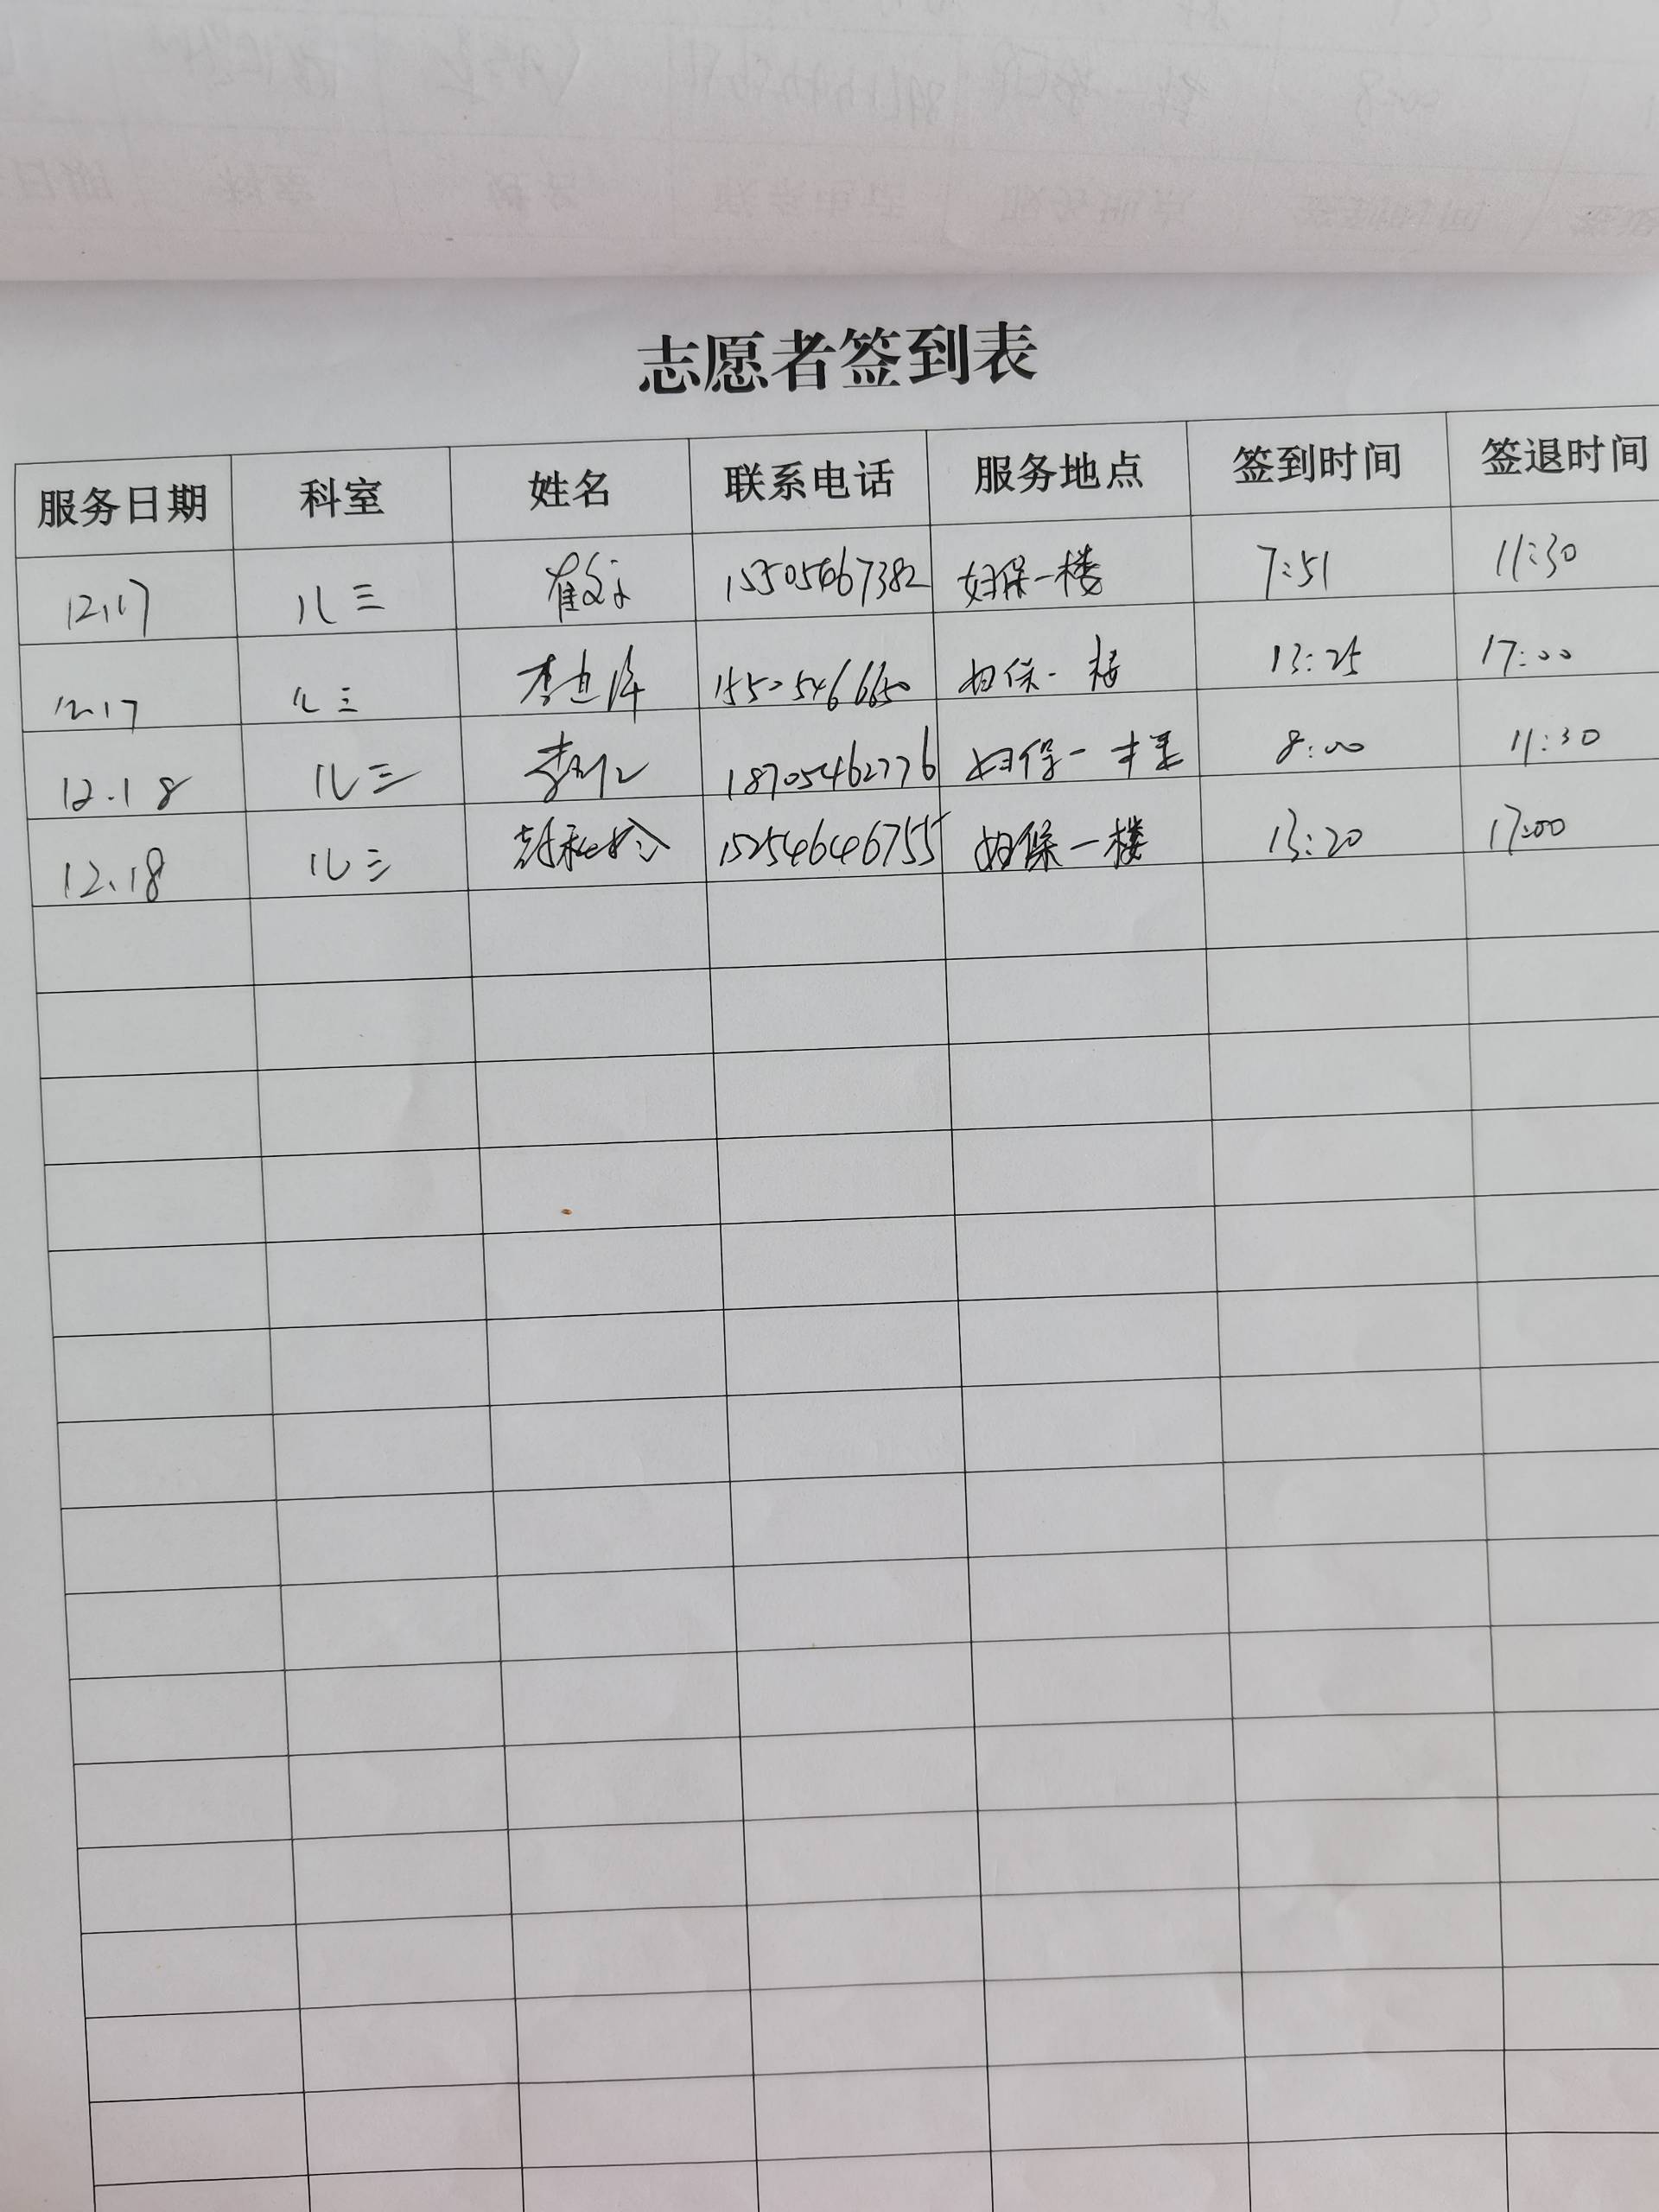 志愿者签到表
服务日期 科室 姓名 联系电话 服务地点 签到时间 签退时间
12.17 儿三 崔 15505467382 妇保一楼 7:51 11:30
12.17 儿三 李 15505466650 妇保一楼 13:25 17:00
12.18 儿三 李 18705462776 妇保一楼 8:00 11:30
12.18 儿三 15254646755 妇保一楼 13:20 17:00